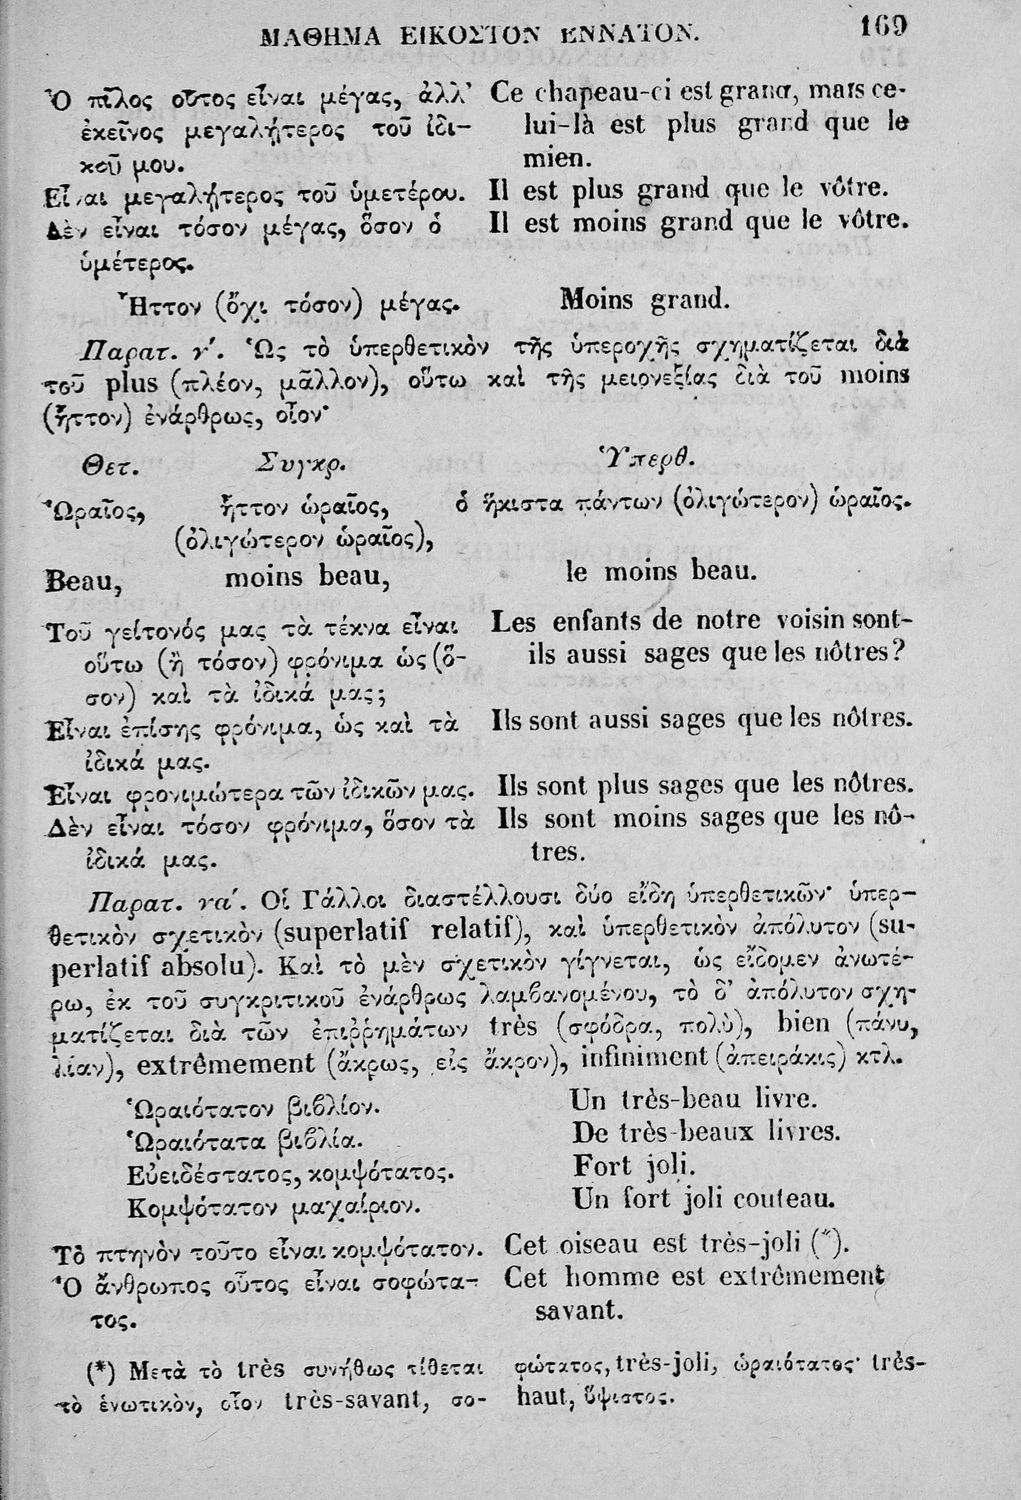 ΜΑΘΗΜΑ ΕΙΚΟΣΤΟΝ ΕΝΝΑΤΟΝ. 169
Ὁ πῖλος οὗτος εἶναι μέγας, ἀλλ' Ce chapeau-ci est grand, mais ce-
ἐκεῖνος μεγαλήτερος τοῦ ἰδι- lui-là est plus grand que le
κοῦ μου. mien.
Εἶναι μεγαλήτερος τοῦ ὑμετέρου. Il est plus grand que le vôtre.
Δὲν εἶναι τόσον μέγας, ὅσον ὁ Il est moins grand que le vôtre.
ὑμέτερος.
Ἧττον (ὄχι τόσον) μέγας. Moins grand.
Παρατ. ν'. Ὡς τὸ ὑπερθετικὸν τῆς ὑπεροχῆς σχηματίζεται διὰ
τοῦ plus (πλέον, μᾶλλον), οὕτω καὶ τῆς μειονεξίας διὰ τοῦ moins
(ἧττον) ἐνάρθρως, οἷον·
Θετ. Συγκρ. Ὑπερθ.
Ὡραῖος, ἧττον ὡραῖος, ὁ ἥκιστα πάντων (ὀλιγώτερον) ὡραῖος.
(ὀλιγώτερον ὡραῖος),
Beau, moins beau, le moins beau.
Τοῦ γείτονός μας τὰ τέκνα εἶναι Les enfants de notre voisin sont-
οὕτω (ἢ τόσον) φρόνιμα ὡς (ὅ- ils aussi sages que les nôtres?
σον) καὶ τὰ ἰδικά μας;
Εἶναι ἐπίσης φρόνιμα, ὡς καὶ τὰ Ils sont aussi sages que les nôtres.
ἰδικά μας.
Εἶναι φρονιμώτερα τῶν ἰδικῶν μας. Ils sont plus sages que les nôtres.
Δὲν εἶναι τόσον φρόνιμα, ὅσον τὰ Ils sont moins sages que les nô-
ἰδικά μας. tres.
Παρατ. να'. Οἱ Γάλλοι διαστέλλουσι δύο εἴδη ὑπερθετικῶν· ὑπερ-
θετικὸν σχετικὸν (superlatif relatif), καὶ ὑπερθετικὸν ἀπόλυτον (su-
perlatif absolu). Καὶ τὸ μὲν σχετικὸν γίγνεται, ὡς εἴδομεν ἀνωτέ-
ρω, ἐκ τοῦ συγκριτικοῦ ἐνάρθρως λαμβανομένου, τὸ δ' ἀπόλυτον σχη-
ματίζεται διὰ τῶν ἐπιῤῥημάτων très (σφόδρα, πολὺ), bien (πάνυ,
λίαν), extrêmement (ἄκρως, εἰς ἄκρον), infiniment (ἀπειράκις) κτλ.
Ὡραιότατον βιβλίον. Un très-beau livre.
Ὡραιότατα βιβλία. De très-beaux livres.
Εὐειδέστατος, κομψότατος. Fort joli.
Κομψότατον μαχαίριον. Un fort joli couteau.
Τὸ πτηνὸν τοῦτο εἶναι κομψότατον. Cet oiseau est très-joli (*).
Ὁ ἄνθρωπος οὗτος εἶναι σοφώτα- Cet homme est extrêmement
τος. savant.
(*) Μετὰ τὸ très συνήθως τίθεται
τὸ ἑνωτικὸν, οἷον très-savant, σο-
φώτατος, très-joli, ὡραιότατος· très-
haut, ὕψιστος.